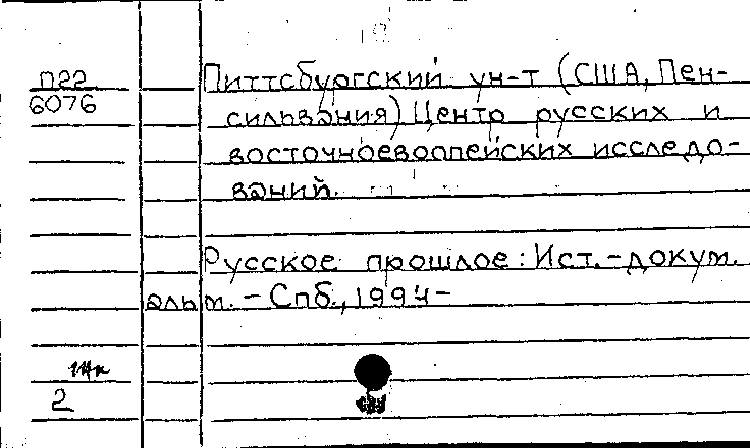 П22
6076
Питтсбургский ун-т (США, Пен-
сильвания) Центр русских и
восточноевропейских исследо-
ваний.
Русское прошлое: Ист.-докум.
альм. - Спб., 1994-
2